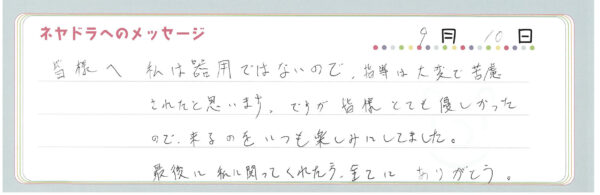 ネヤドラへのメッセージ
9月 10日
皆様へ 私は器用ではないので、指導は大変で苦慮
されたと思います。ですが皆様とても優しかった
ので、来るのをいつも楽しみにしてました。
最後に私に関ってくれた方、全てに ありがとう。